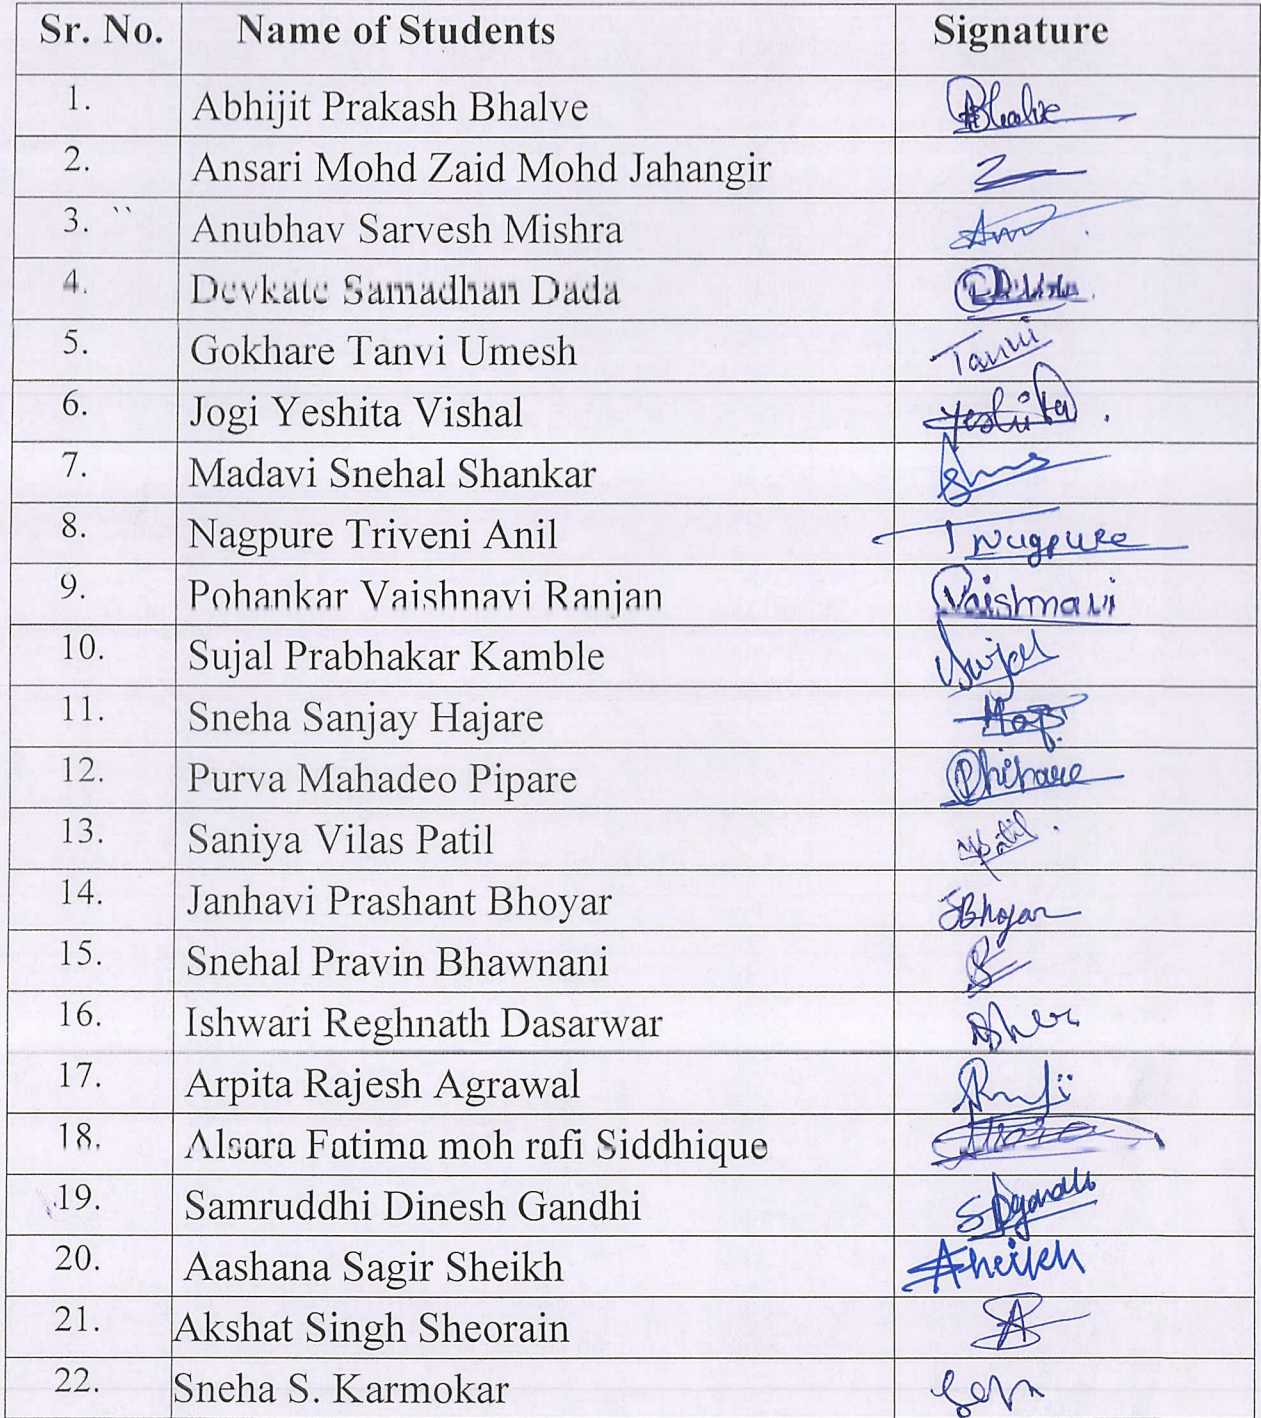 Sr. No. Name of Students Signature
1. Abhijit Prakash Bhalve Bhalve
2. Ansari Mohd Zaid Mohd Jahangir
3. `` Anubhav Sarvesh Mishra
4. Devkate Samadhan Dada
5. Gokhare Tanvi Umesh Tanvi
6. Jogi Yeshita Vishal Yeshita
7. Madavi Snehal Shankar
8. Nagpure Triveni Anil TNagpure
9. Pohankar Vaishnavi Ranjan Vaishnavi
10. Sujal Prabhakar Kamble Sujal
11. Sneha Sanjay Hajare
12. Purva Mahadeo Pipare
13. Saniya Vilas Patil Patil
14. Janhavi Prashant Bhoyar JBhoyar
15. Snehal Pravin Bhawnani
16. Ishwari Reghnath Dasarwar
17. Arpita Rajesh Agrawal
18. Alsara Fatima moh rafi Siddhique
19. Samruddhi Dinesh Gandhi SDgandhi
20. Aashana Sagir Sheikh Asheikh
21. Akshat Singh Sheorain
22. Sneha S. Karmokar